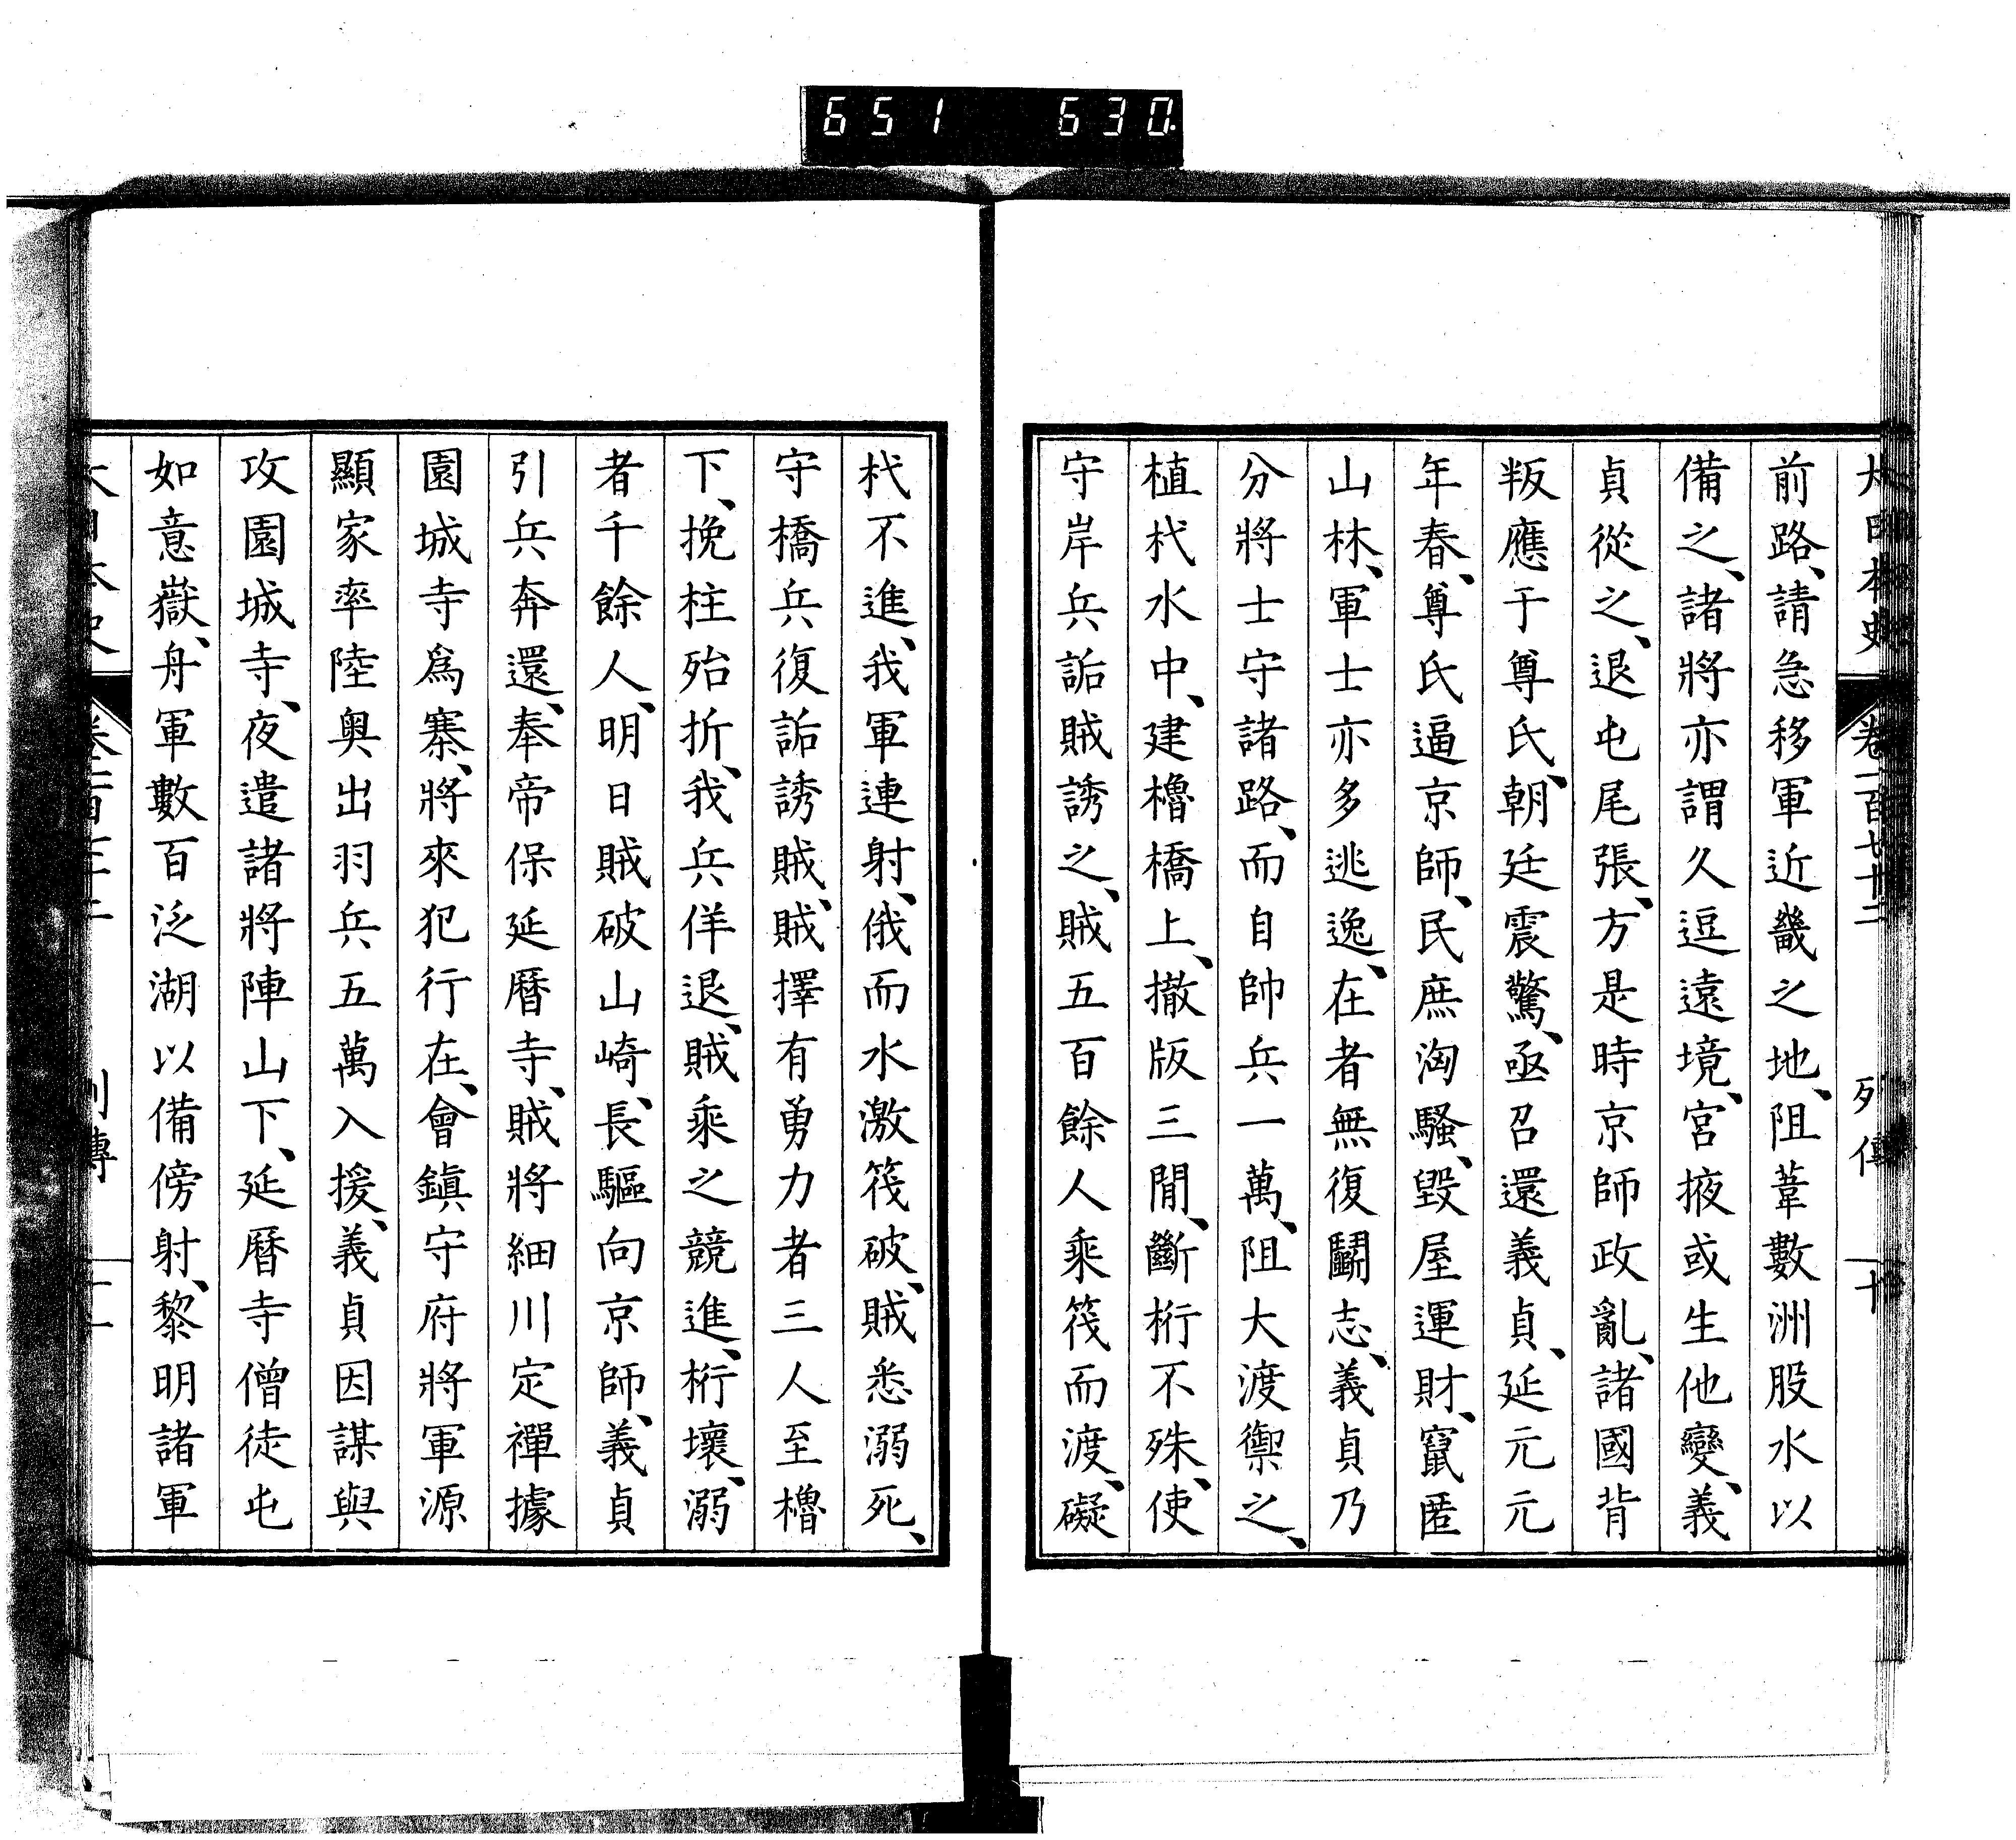 651 630
大日本史 卷一百七十二 列傳 十
前路、請急移軍近畿之地、阻葦數洲股水以
備之、諸將亦謂久逗遠境、宮掖或生他變、義
貞從之、退屯尾張、方是時京師政亂、諸國背
叛應于尊氏、朝廷震驚、亟召還義貞、延元元
年春、尊氏逼京師、民庶洶騷、毀屋運財、竄匿
山林、軍士亦多逃逸、在者無復鬭志、義貞乃
分將士守諸路、而自帥兵一萬、阻大渡禦之、
植杙水中、建櫓橋上、撤版三間、斷桁不殊、使
守岸兵詬賊誘之、賊五百餘人乘筏而渡、礙
杙不進、我軍連射、俄而水激筏破、賊悉溺死、
守橋兵復詬誘賊、賊擇有勇力者三人至櫓
下、挽柱殆折、我兵佯退、賊乘之競進、桁壞、溺
者千餘人、明日賊破山崎、長驅向京師、義貞
引兵奔還、奉帝保延曆寺、賊將細川定禪據
園城寺爲寨、將來犯行在、會鎭守府將軍源
顯家率陸奥出羽兵五萬入援、義貞因謀與
攻園城寺、夜遣諸將陣山下、延曆寺僧徒屯
如意嶽、舟軍數百泛湖以備傍射、黎明諸軍